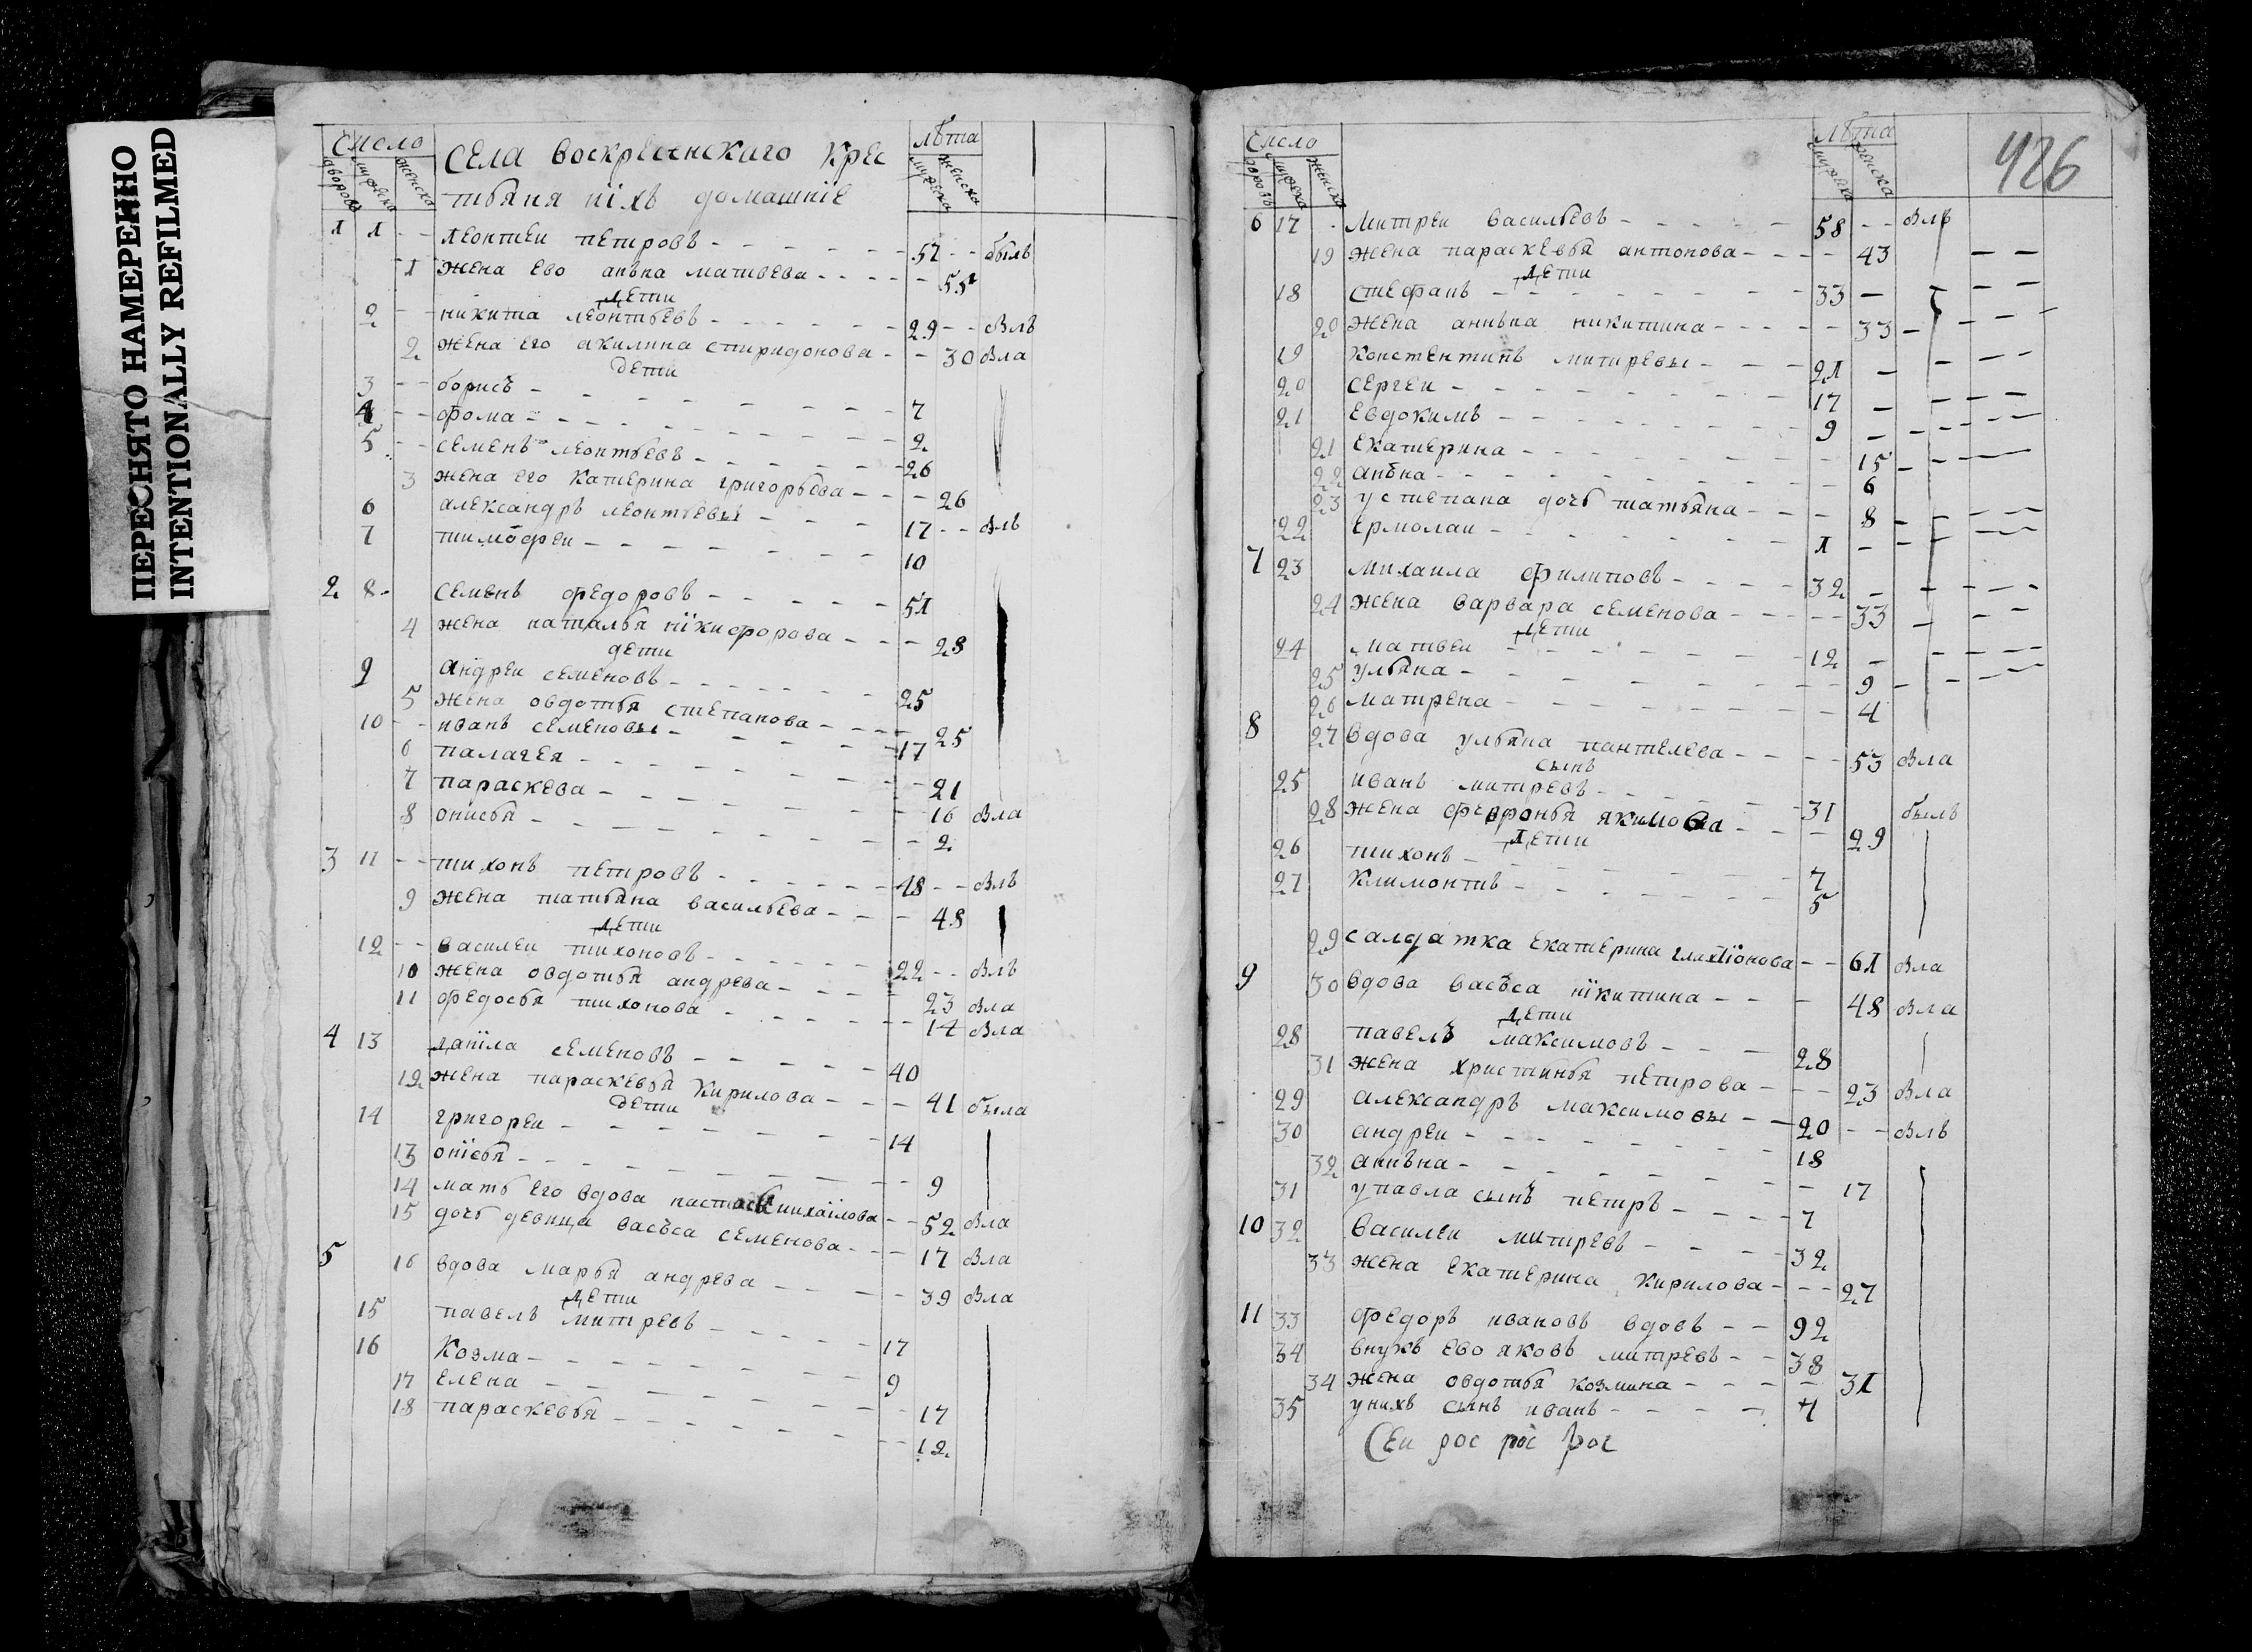 ПЕРЕСНЯТО НАМЕРЕННО
INTENTIONALLY REFILMED
Число
дворовъ мужеска женска
села воскресенскаго крес
тьяня ніхъ домашніе
лѣта
мужеска женска
1 1 -- леонтеи петровъ 57 -- былъ
1 жена ево анъна матвеева
дети
2 -- никита леонтьевъ 29 -- былъ
2 жена его акилина спиридонова 30 была
дети
3 -- борисъ 7
4 -- фома 2
5 -- семенъ леонтьевъ 26
3 жена его катерина григорьева 26
6 александръ леонтьевы 17 -- былъ
7 тимофеи 10
2 8 семенъ федоровъ 51
4 жена наталья нікифорова 28
дети
9 андреи семеновъ 25
5 жена овдотья степанова 25
10 -- иванъ семеновы 17
6 палагея 21
7 параскева 16 была
8 онисья 2
3 11 -- тихонъ петровъ 48 -- былъ
9 жена татьяна васильева 48
дети
12 -- василеи тихоновъ 22 -- былъ
10 жена овдотья андрева 23 была
11 федосья тихонова 14 была
4 13 даніла семеновъ 40
12 жена параскевья кирилова 41 была
дети
14 григореи 14
13 онісья 9
14 мать его вдова настасья михаілова 52 была
15 дочь девица васъса семенова 17 была
5 16 вдова марья андрева 39 была
дети
15 павелъ митревъ 17
16 козма 9
17 елена 17
18 параскевья 12
Число
дворовъ мужеска женска
лѣта
мужеска женска
426
6 17 митреи васильевъ 58 -- былъ
19 жена параскевья антонова 43
дети
18 стефанъ 33
20 жена анъна никитина 33
19 констентинъ митревы 21
20 сергеи 17
21 евдокимъ 9
21 екатерина 15
22 анъна 6
23 у степана дочь татьяна 8
22 ермолаи 1
7 23 михаила филиповъ 32
24 жена варвара семенова 33
дети
24 матвеи 12
25 ульяна 9
26 матрена 4
8 27 вдова ульяна пантелева 53 была
сынъ
25 иванъ митревъ 31 былъ
28 жена февронья якимова 29
дети
26 тихонъ 7
27 климонтъ 5
29 салдатка екатерина 61 была
9 30 вдова васъса нікитина 48 была
дети
28 павелъ максимовъ 28
31 жена христинья петрова 23 была
29 александръ максимовы 20 -- былъ
30 андреи 18
32 анъна 17
31 у павла сынъ петръ 7
10 32 василеи митревъ 32
33 жена екатерина кирилова 27
11 33 федоръ ивановъ вдовъ 92
34 внукъ ево яковъ митревъ 38
34 жена овдотья козмина 31
35 у нихъ сынъ иванъ 4